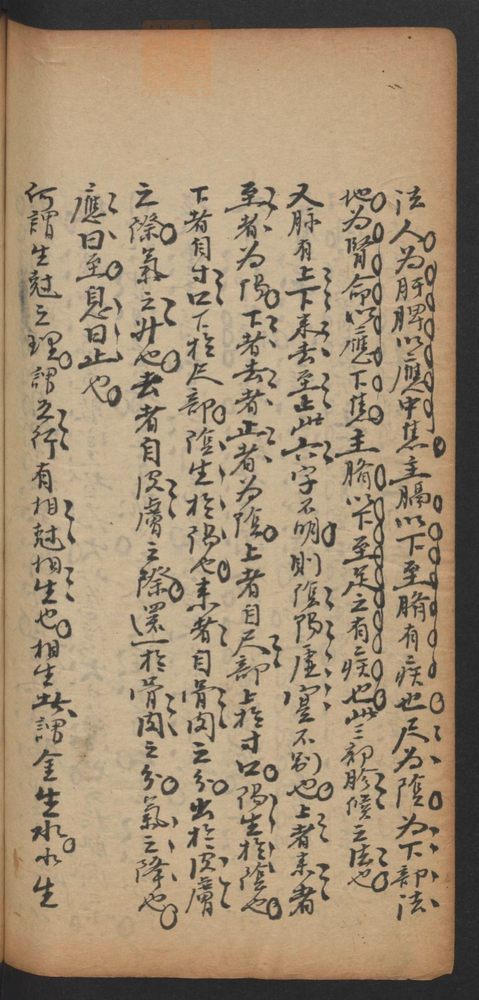 法人為肝脾以應中焦主膈以下至臍有疾也尺為陰為下部法
地為腎命以應下焦主臍以下至足之有疾也此三部胗候之法也
又脉有上下來去至止此六字不明則陰陽虛寔不別也上者來者
至者為陽下者去者止者為陰上者自尺部上於寸口陽生於陰也
下者自寸口下於尺部陰生於陽也來者自骨肉之分出於皮膚
之際氣之升也去者自皮膚之際還於骨肉之分氣之降也
應曰至息曰止也
何謂生尅之理謂五行有相尅相生也相生者謂金生水水生